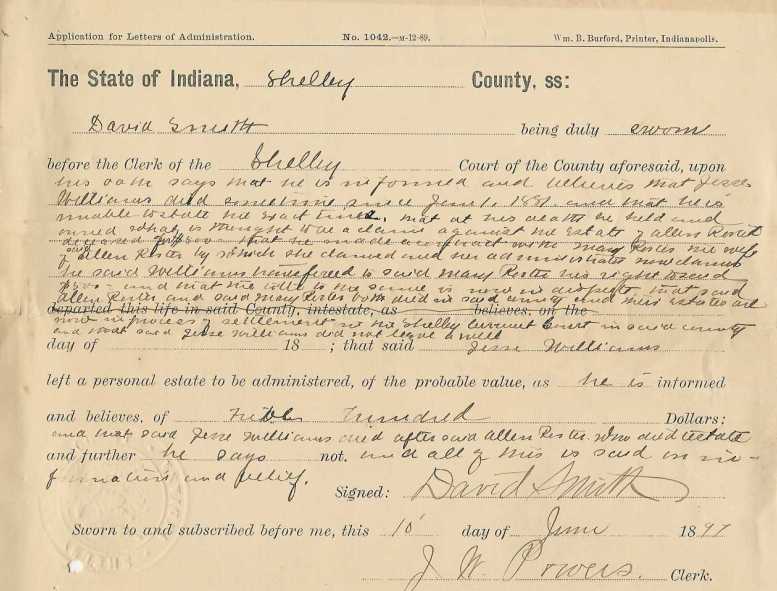 Application for Letters of Administration. No. 1042.—M-12-89. Wm. B. Burford, Printer, Indianapolis.
The State of Indiana, Shelby County, ss:
David Smith being duly sworn
before the Clerk of the Shelby Court of the County aforesaid, upon
his oath says that he is informed and believes that Jesse
Williams died sometime since June 1, 1881. and that he is
unable to state the exact time, that at his death he held and
owned what is thought to be a claim against the Estate of Allen
deceased for that he made a contract with Mary the wife
of said Allen by which she claimed and her administrator now claims
he said Williams transferred to said Mary his right to said
and that the title to the same is now in dispute, that said
Allen and said Mary both died in said county and their estates are
departed this life in said County, intestate, as believes, on the
now in process of settlement in the Shelby Circuit Court in said county
and that said Jesse Williams did not leave a will
day of 18 ; that said Jesse Williams
left a personal estate to be administered, of the probable value, as he is informed
and believes, of Hundred Dollars;
and that said Jesse Williams died after said Allen who died testate
and further he says not. and all of this is said on in-
formation and belief.
Signed: David Smith
Sworn to and subscribed before me, this 10 day of June 1897
J. W. Powers. Clerk.